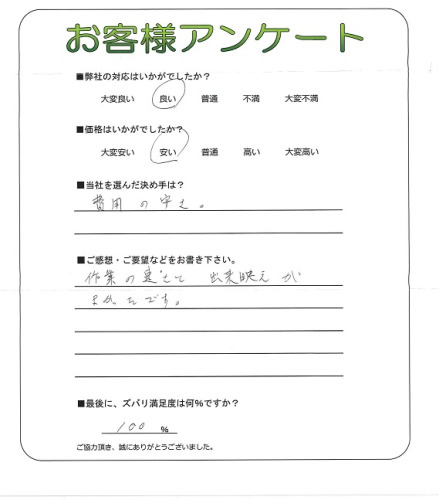 お客様アンケート
■弊社の対応はいかがでしたか?
大変良い 良い 普通 不満 大変不満
■価格はいかがでしたか?
大変安い 安い 普通 高い 大変高い
■当社を選んだ決め手は?
費用の安さ。
■ご感想・ご要望などをお書き下さい。
作業の速さと 出来映えが
よかったです。
■最後に、ズバリ満足度は何%ですか?
100 %
ご協力頂き、誠にありがとうございました。